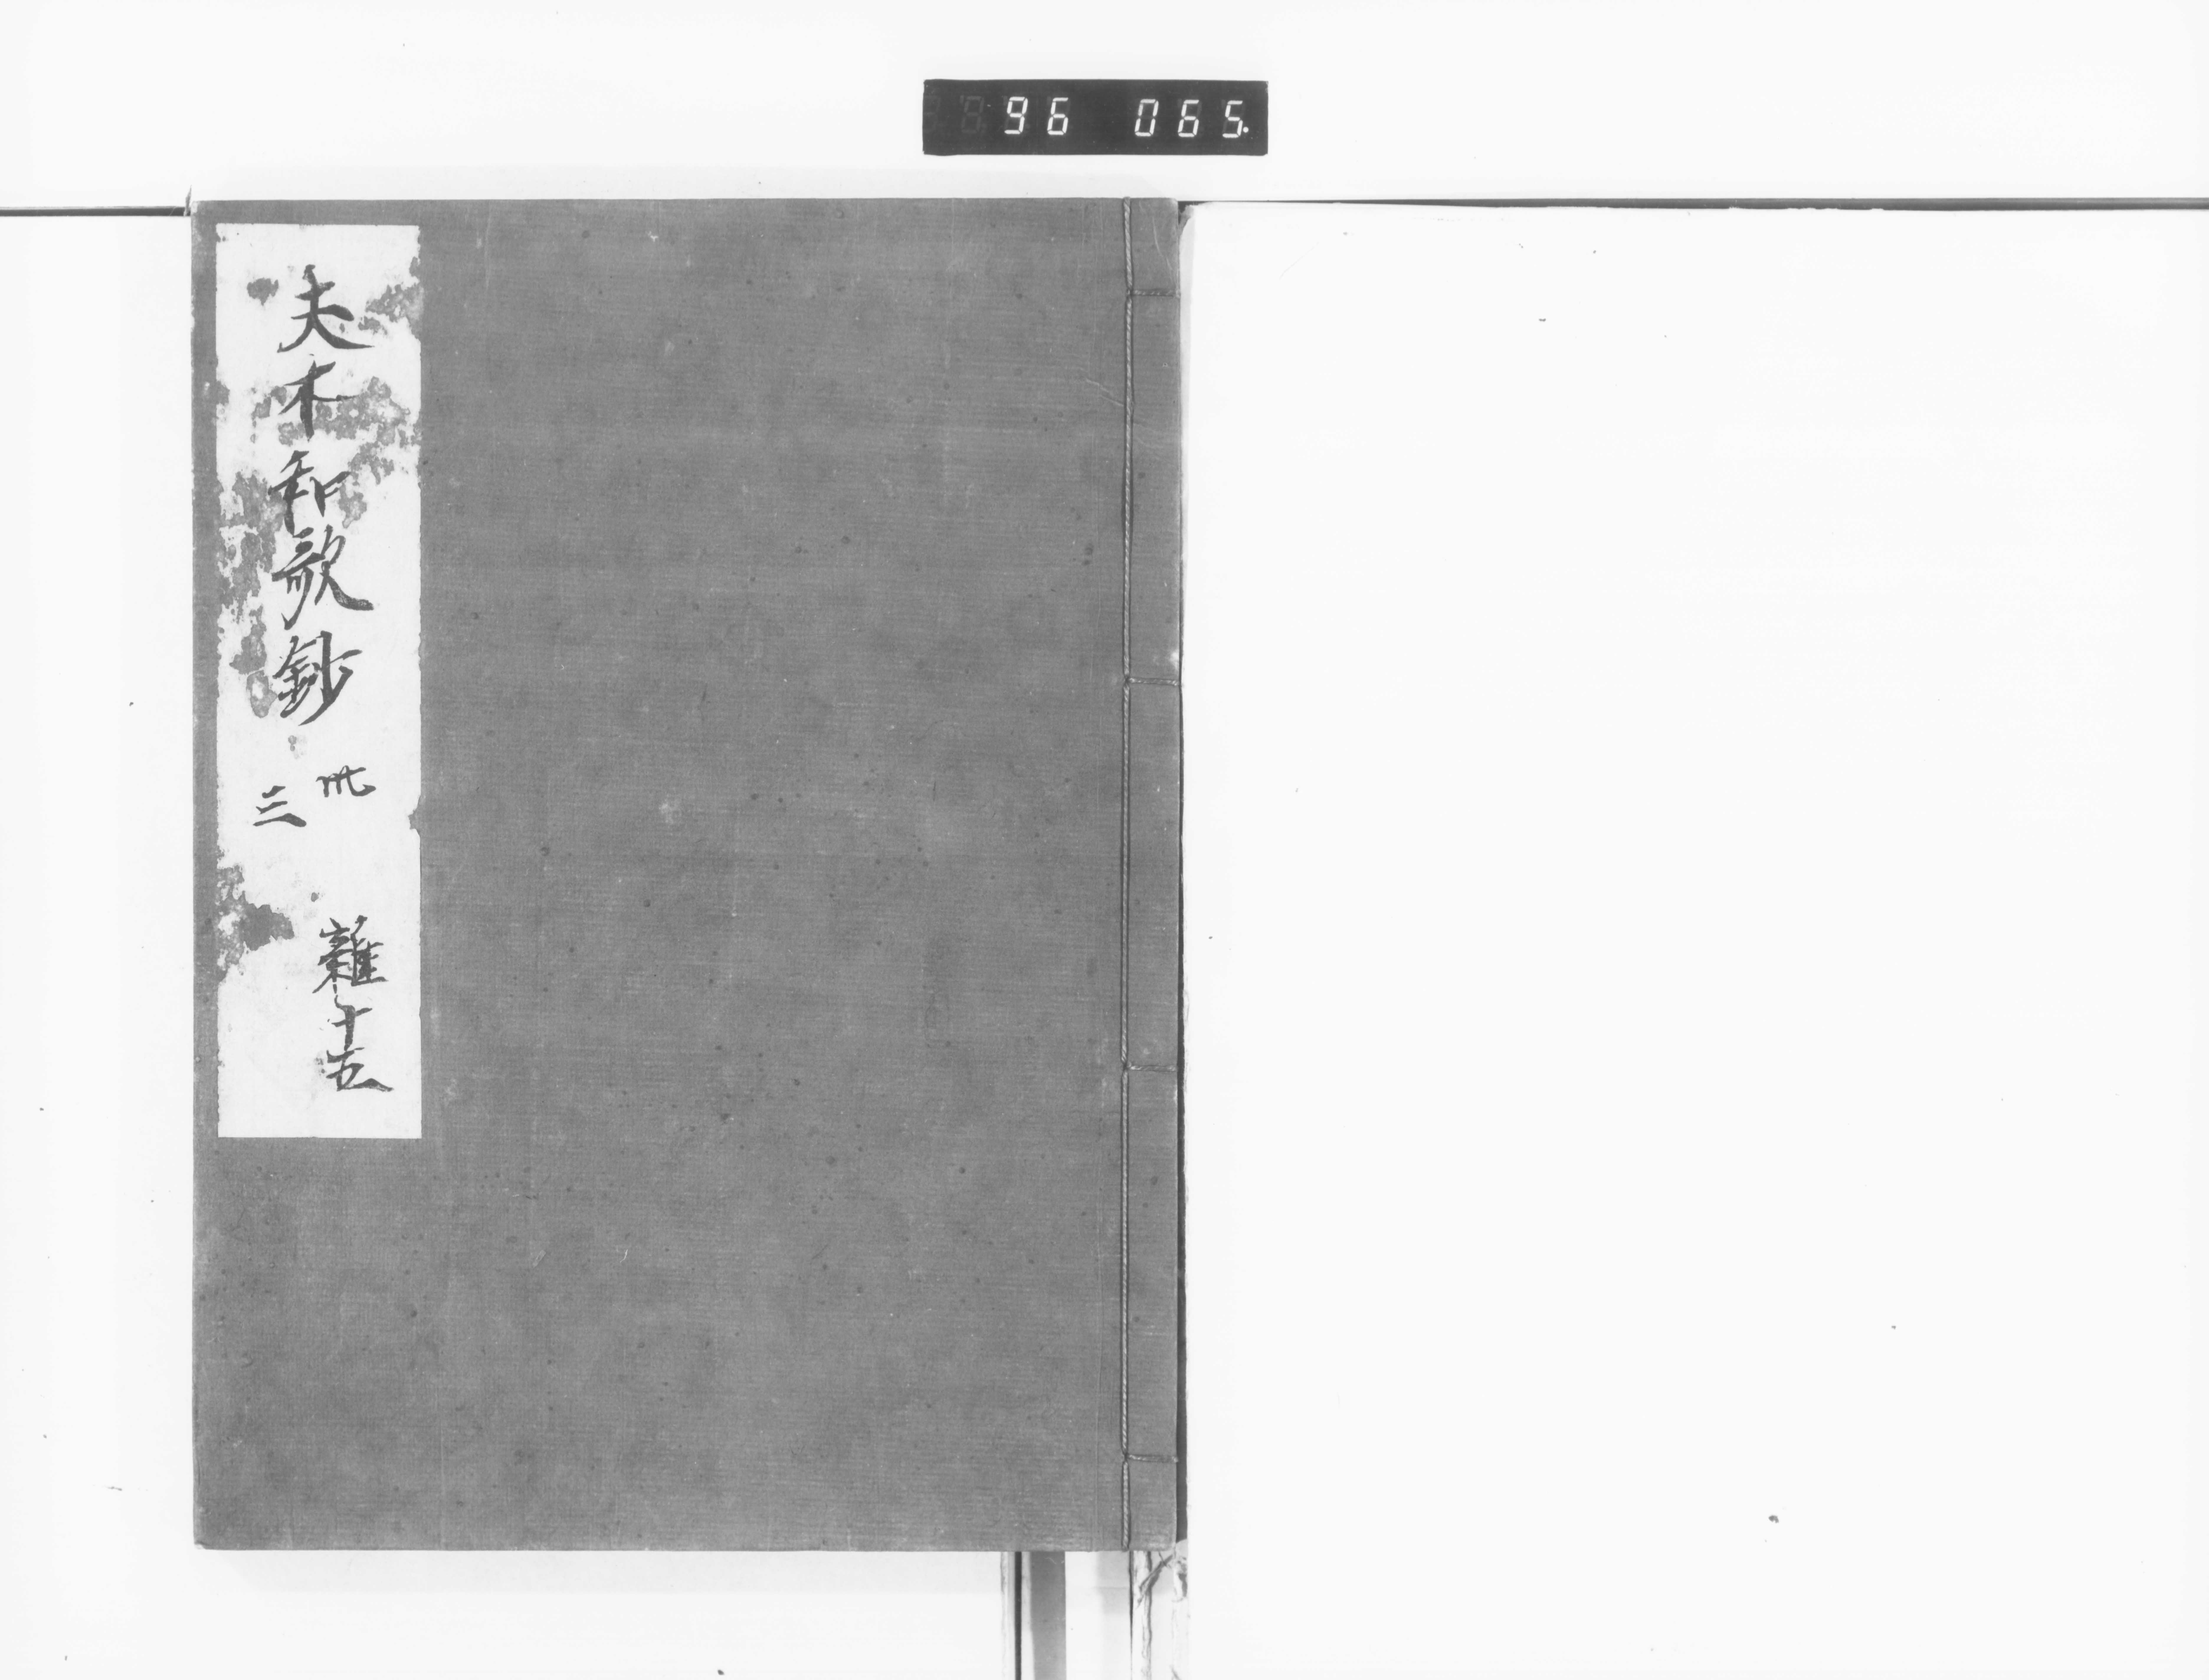 96 065.
夫木和歌鈔
卅
三
雜十五